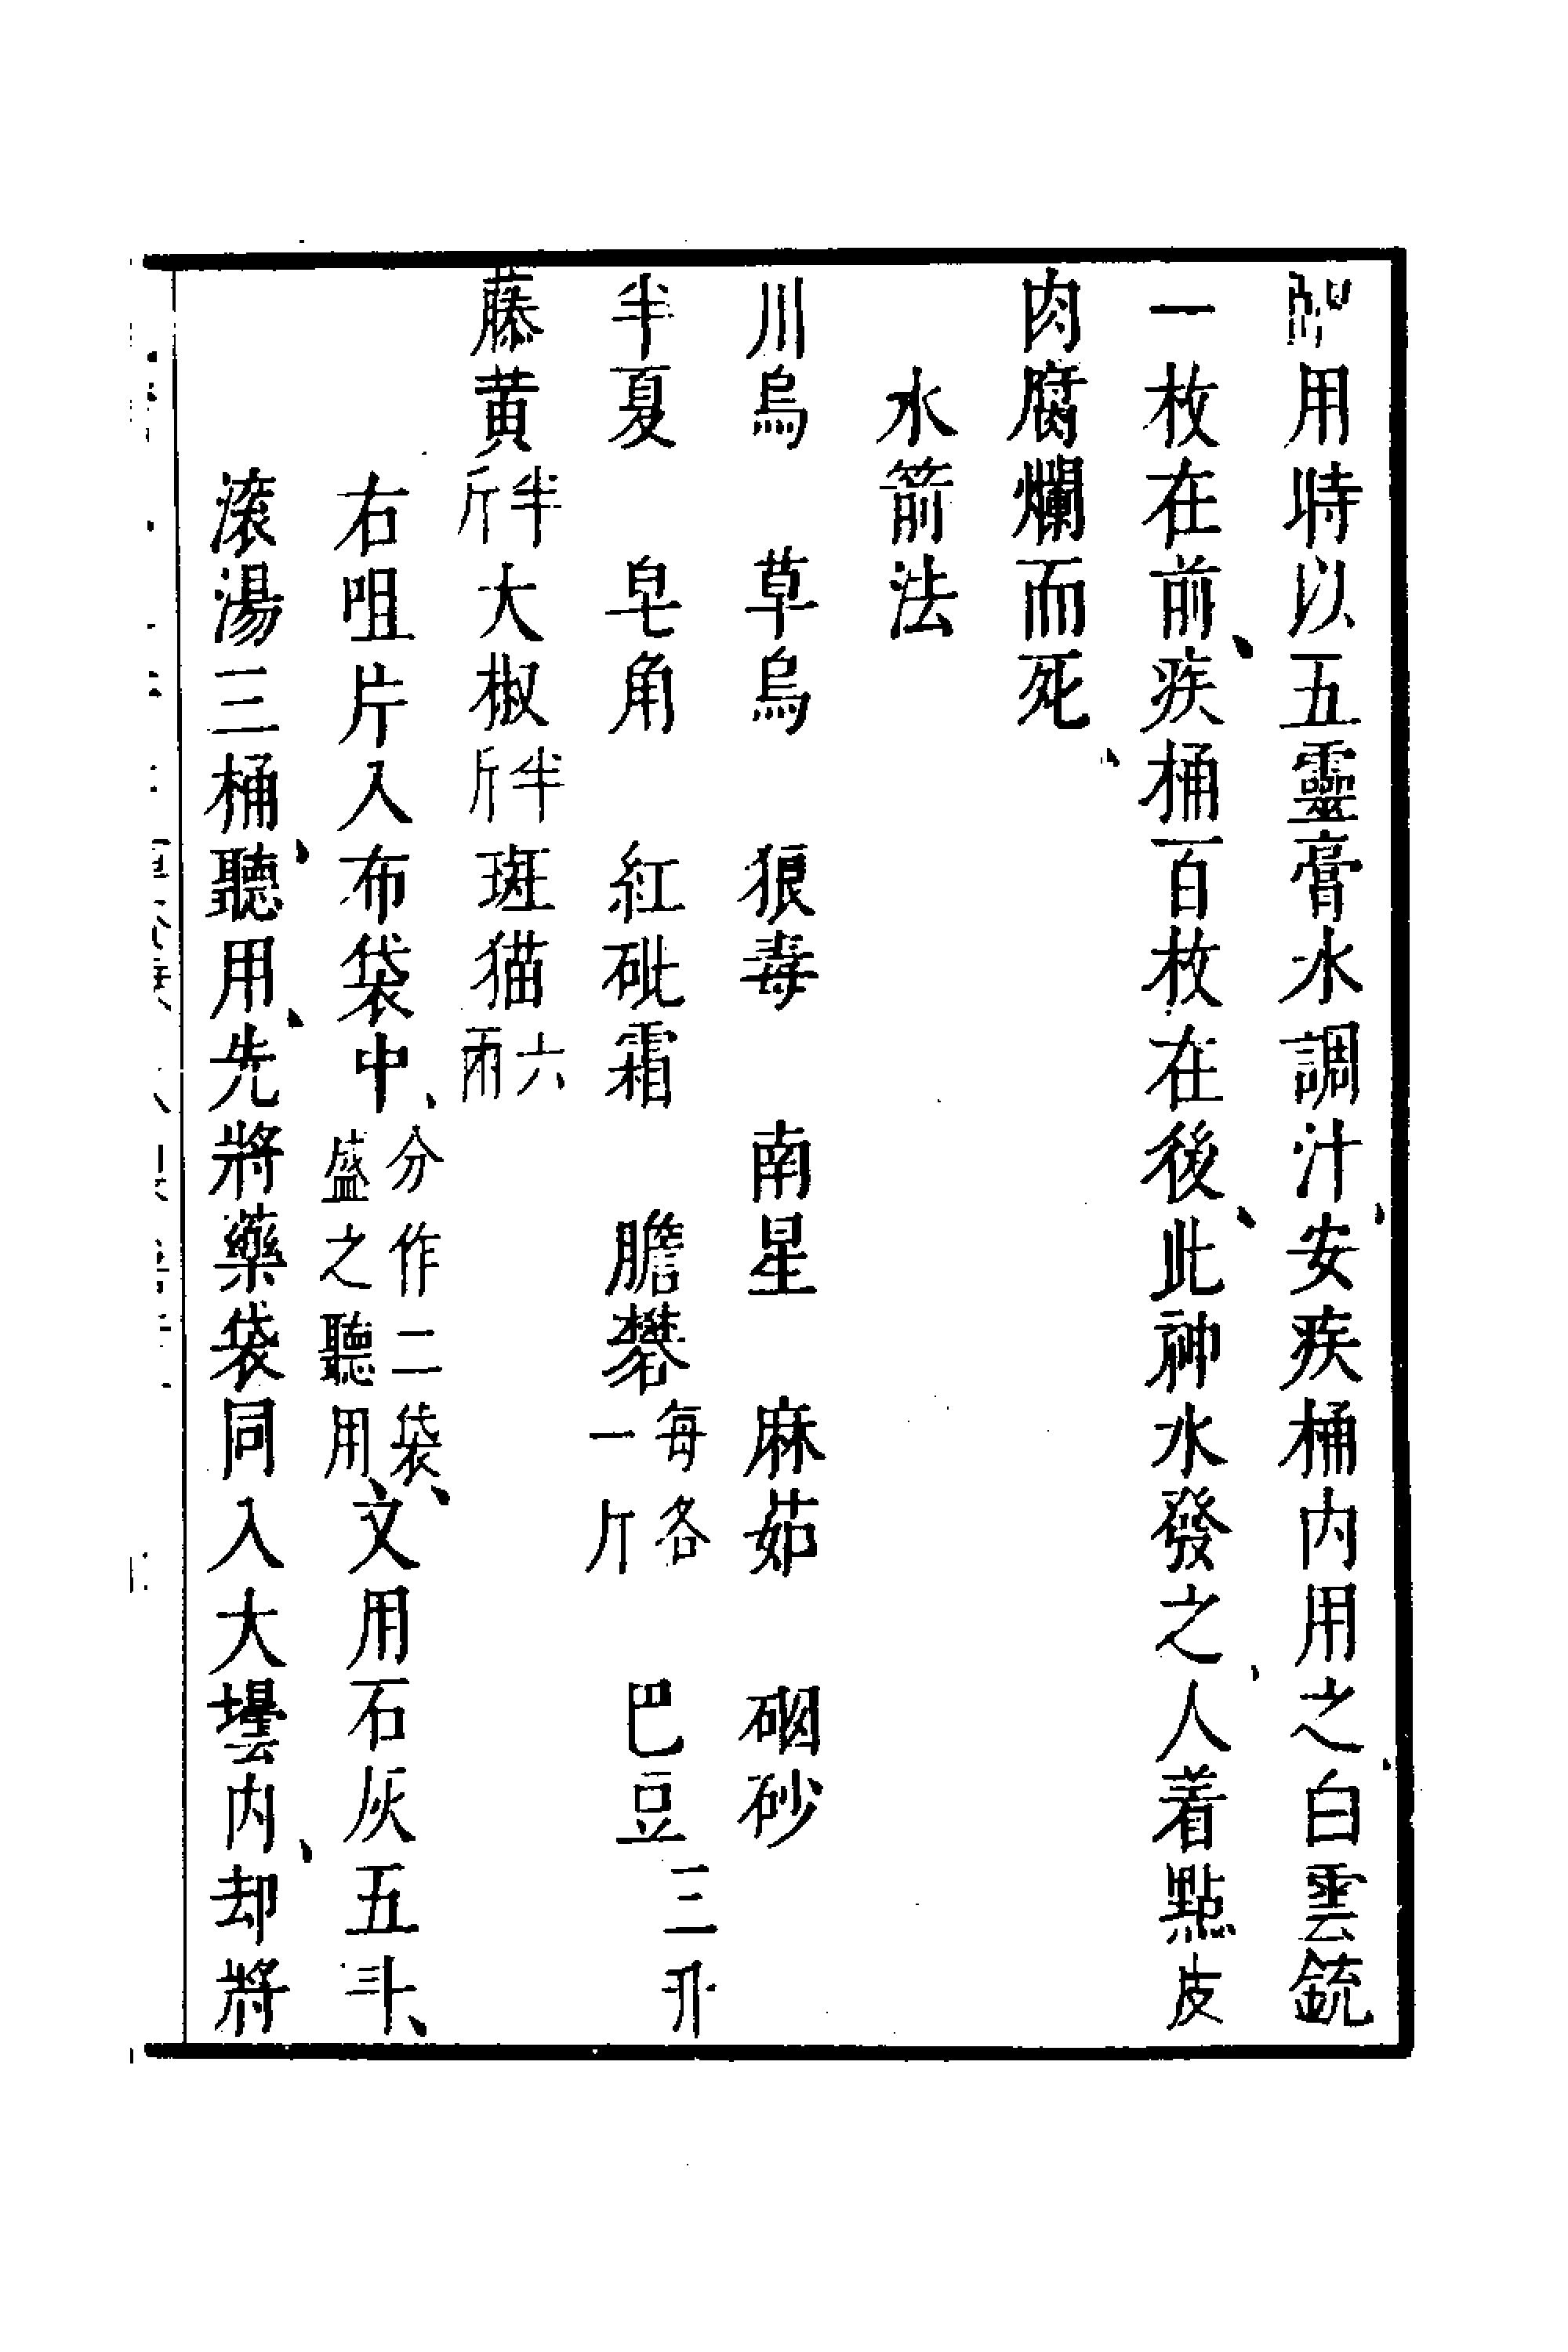 用時以五靈膏水調汁安疾桶内用之白雲銃
一枚在前疾桶百枚在後此神水發之人着點皮
肉腐爛而死
水箭法
川烏 草烏 狼毒 南星 麻茹 硇砂
半夏 皂角 紅砒霜 膽礬每各一斤 巴豆三升
藤黄半斤大椒半斤斑猫六兩
右咀片入布袋中分作二袋盛之聽用文用石灰五斗
滚湯三桶聽用先將藥袋同入大壜内却將